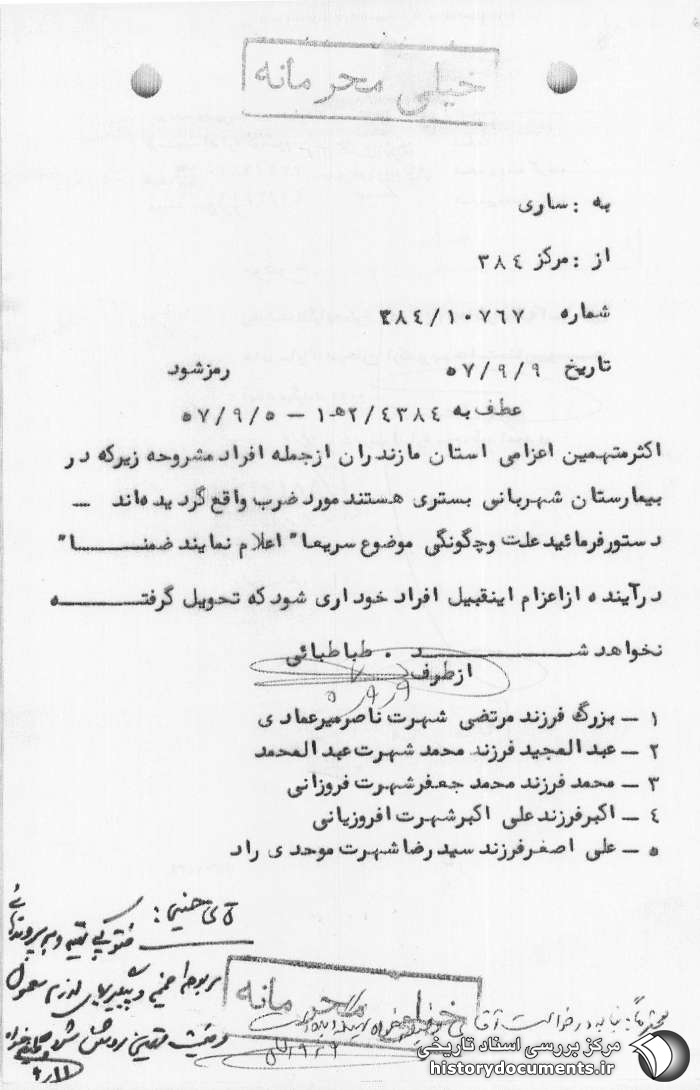 خیلی محرمانه
به : ساری
از : مرکز ۳۸٤
شماره ۳۸٤/۱۰۷۶۷
تاریخ ۵۷/۹/۹ رمزشود
عطف به ۲/٤۳۸٤ه‍ ۱ – ۵۷/۹/۵
اکثرمتهمین اعزامی استان مازندران ازجمله افراد مشروحه زیرکه در
بیمارستان شهربانی بستری هستند مورد ضرب واقع گردیده‌اند –
دستورفرمائید علت وچگونگی موضوع سریعا" اعلام نمایند ضمنا"
درآینده ازاعزام اینقبیل افراد خودداری شود که تحویل گرفته
نخواهد شد . طباطبائی
ازطرف
۹ ر ۹
۱ – بزرگ فرزند مرتضی شهرت ناصرمیرعمادی
۲ – عبدالمجید فرزند محمد شهرت عبدالمحمد
۳ – محمد فرزند محمد جعفرشهرت فروزانی
٤ – اکبرفرزند علی اکبرشهرت افروزیانی
۵ – علی اصغرفرزند سید رضا شهرت موحدی راد
آقای حسنی :
فتوکپی تهیه و به پرونده‌های
مربوطه ضمیمه و پیگیریهای لازم معمول
وضعیت متهمین روشن شود
۹/۱۱
خیلی محرمانه
مرکز بررسی اسناد تاریخی
historydocuments.ir